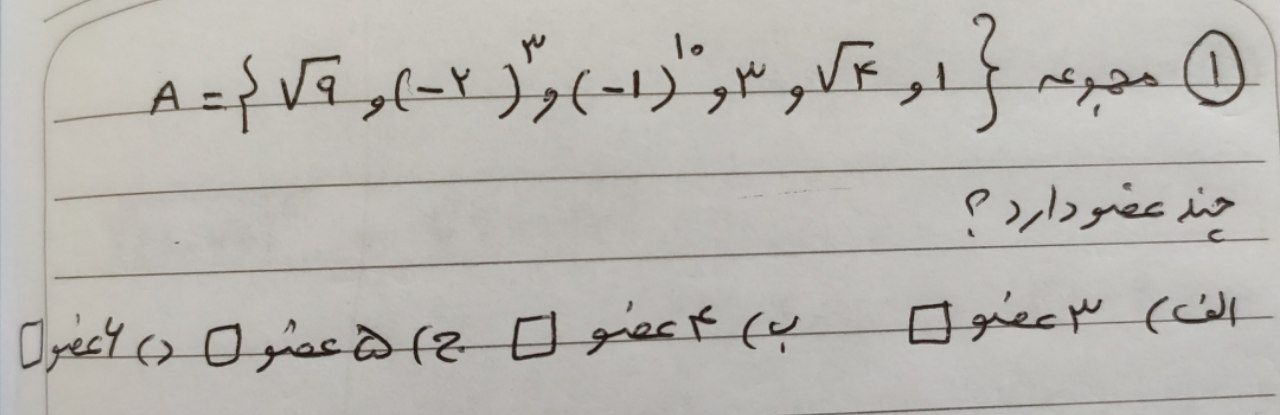 ① مجموعه A = {√۹ و (-۲)^۳ و (-۱)^۱۰ و ۳ و √۴ و ۱}
چند عضو دارد ؟
الف) ۳ عضو □ ب) ۴ عضو □ ج) ۵ عضو □ د) ۶ عضو □